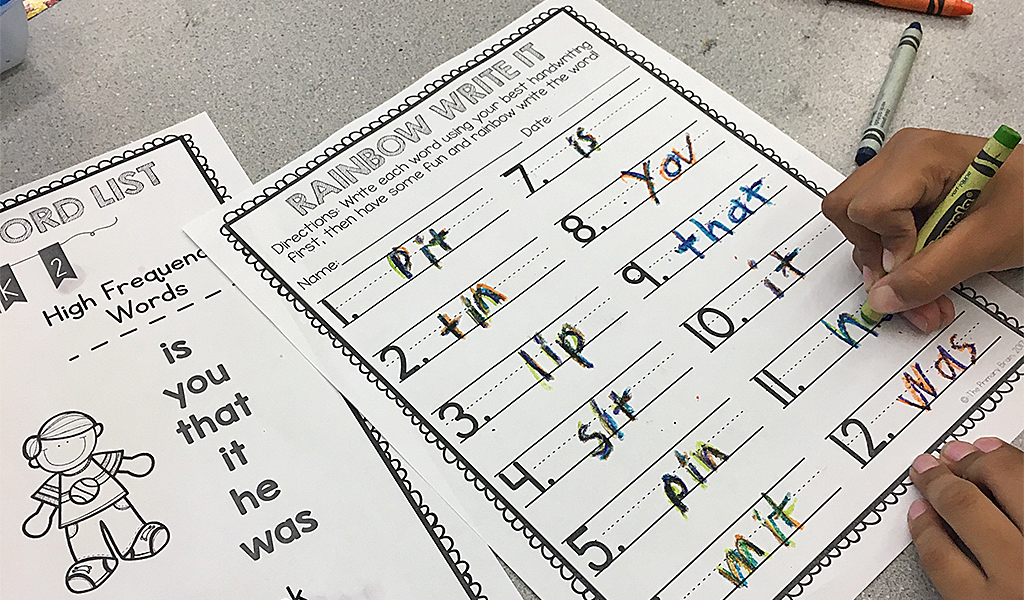 ORD LIST
K 2
High Frequenc
Words
is
you
that
it
he
was
RAINBOW WRITE IT
Directions: Write each word using your best handwriting
first, then have some fun and rainbow write the word!
Name:
Date:
1. pit
2. tin
3. lip
4. sit
5. pin
mit
7. is
8. you
9. that
10. it
11. h
12. was
© The Primary Brain